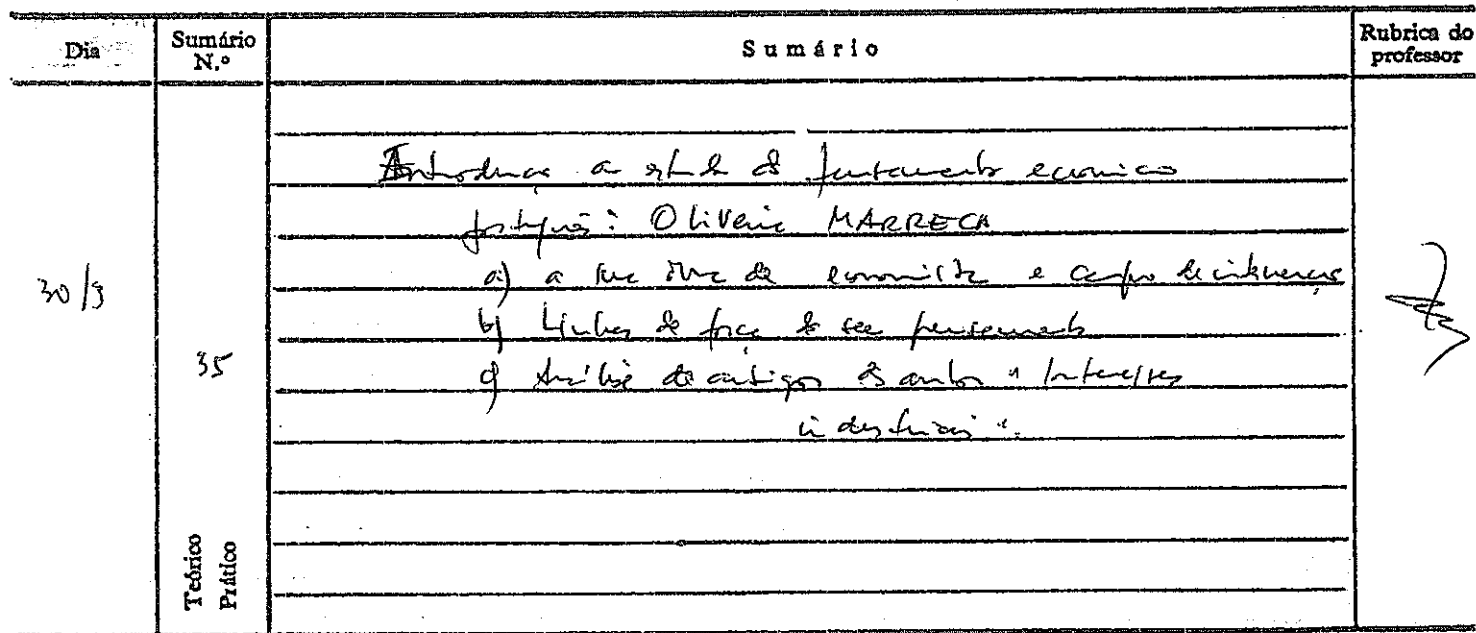 Dia
Sumário N.º
Sumário
Rubrica do professor
30/3
35
Teórico
Prático
Introdução ao estudo do pensamento económico
português: Oliveira MARRECA
a) a sua obra de economista e campo de intervenção
b) Linhas de força do seu pensamento
c) Análise do artigo do autor "Interesses
industriais".